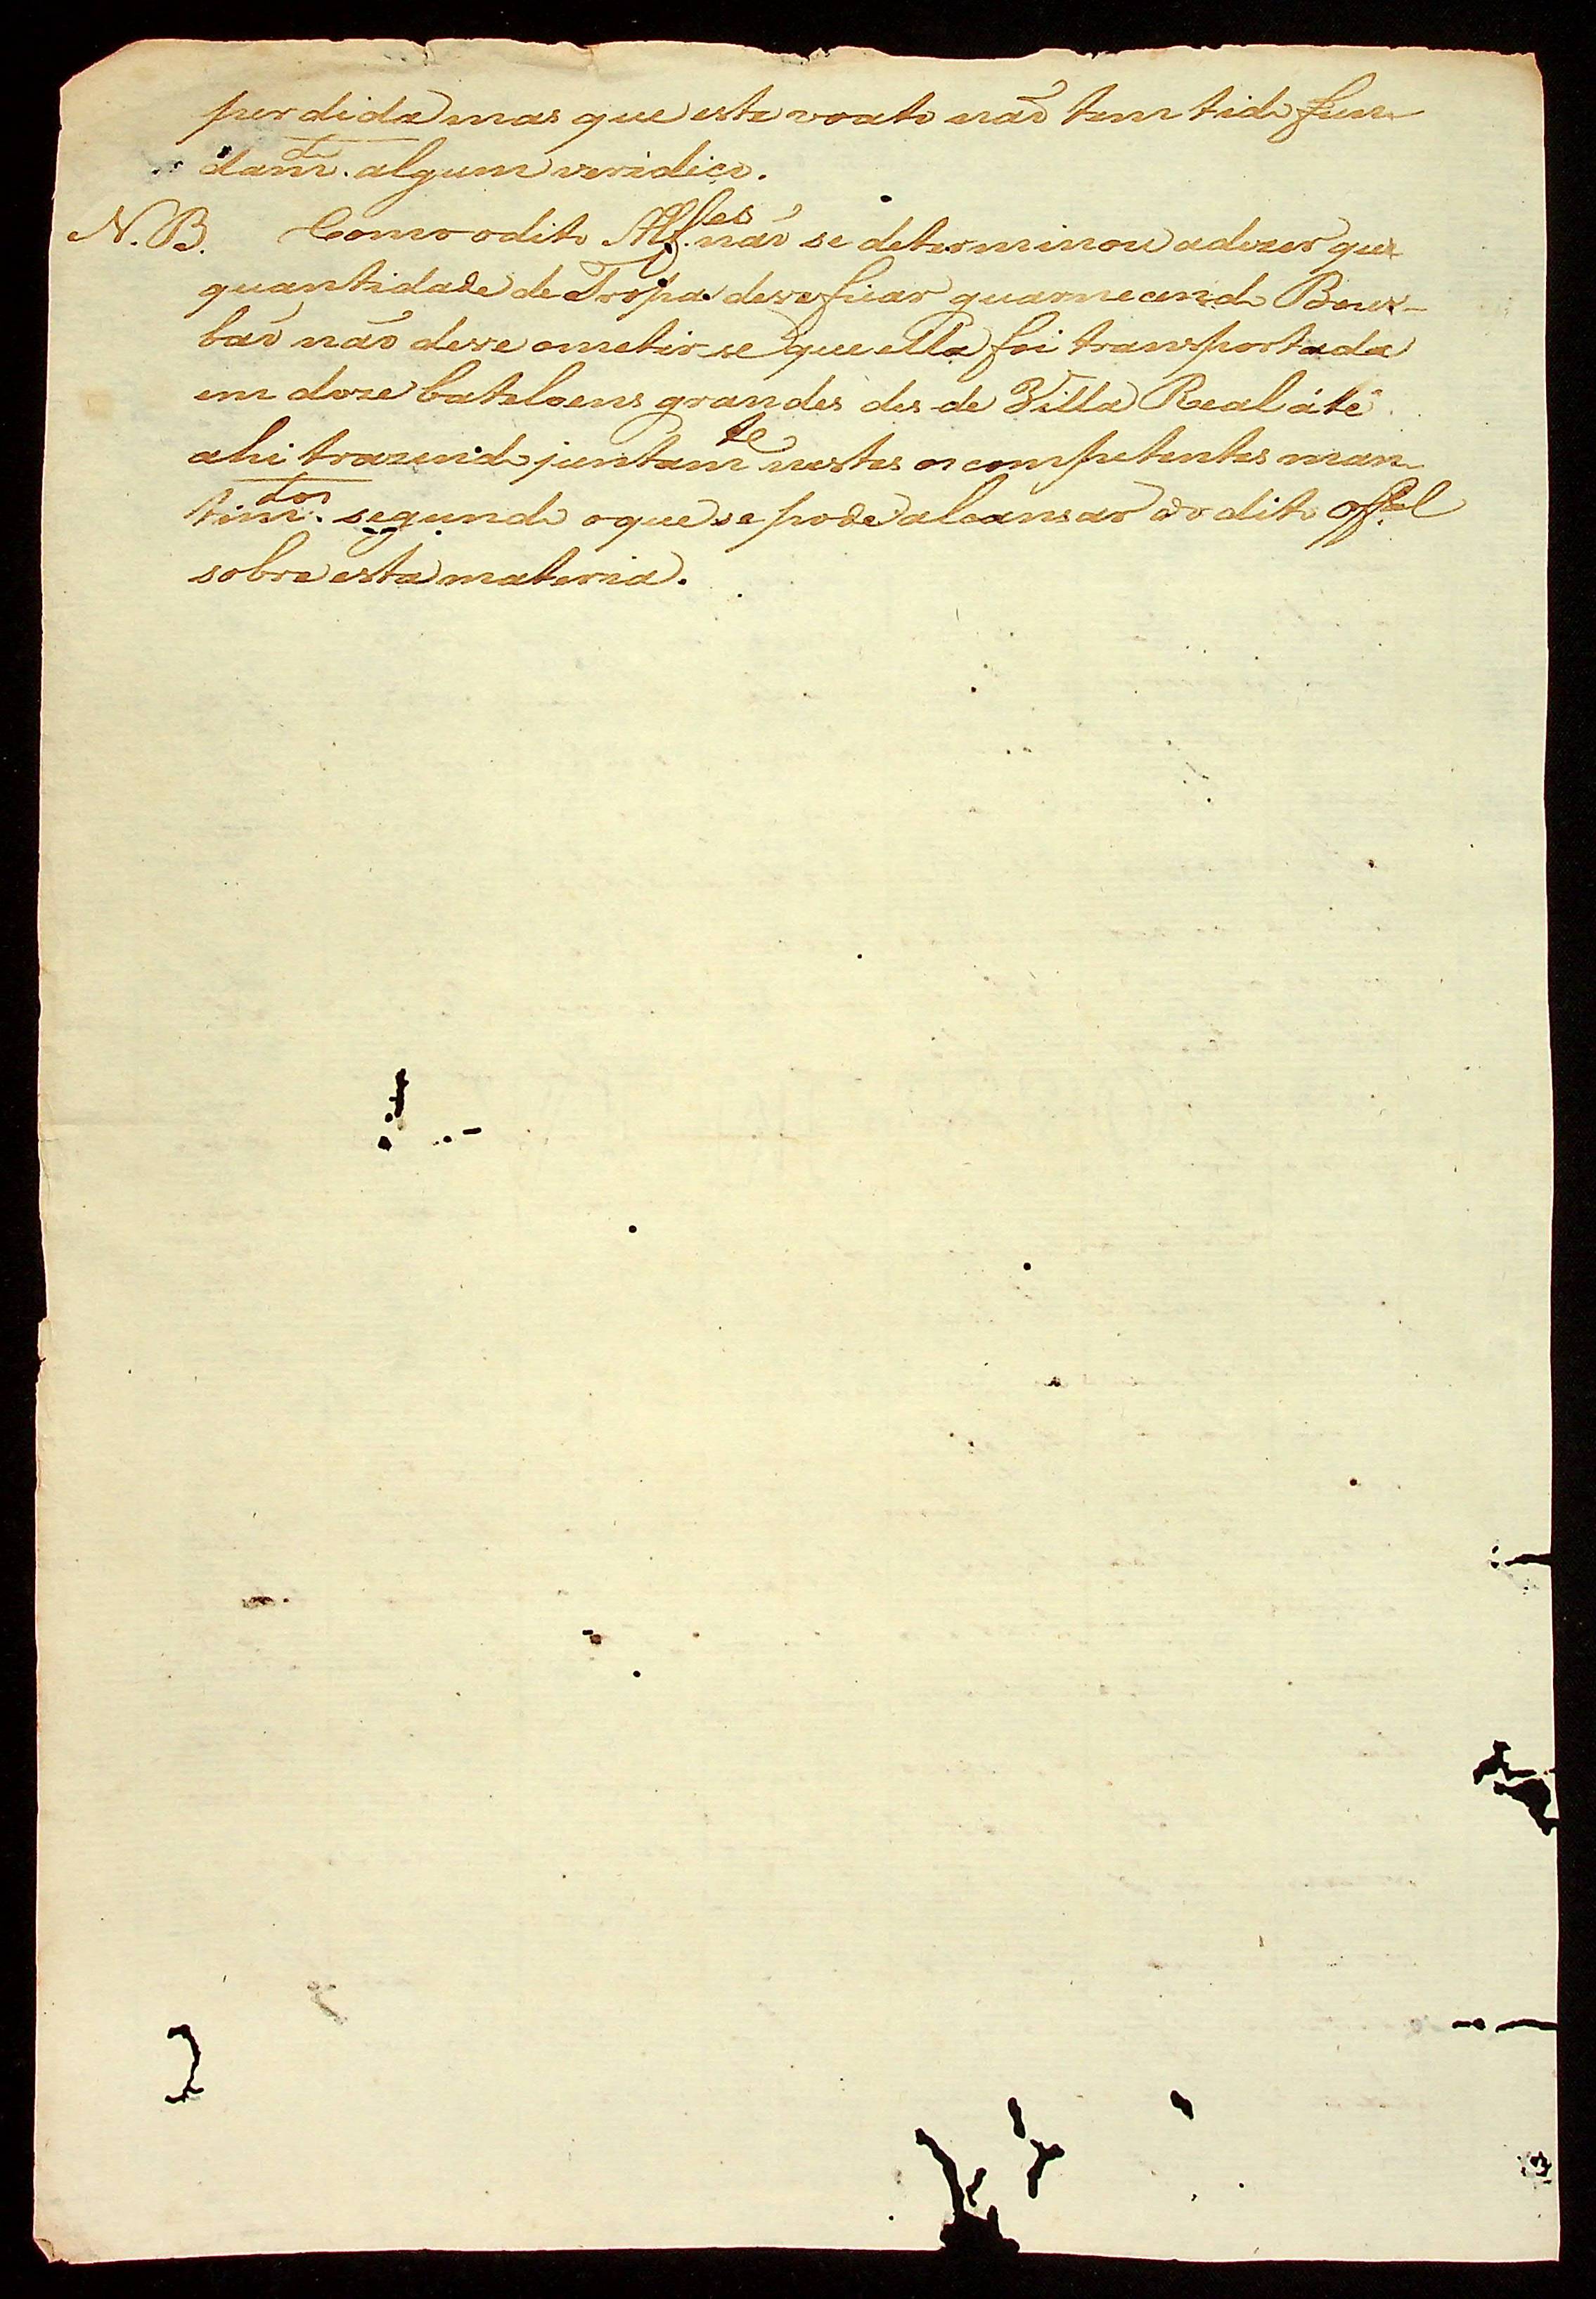 perdida mas que este voato naõ tem tido fun-
dam.to algum veridico.
N.B. Como o dito Alf.es naõ se determinou a dezer que
quantidade de Tropa deve ficar guarnecendo Bour-
baõ naõ deve ometir se que ella foi transportada
em doze bateloens grandes des de Villa Real áte
ahi trazendo juntam.te nestes os competentes man-
tim.tos segundo o que se pode alcansar do dito off.al
sobre esta materia.